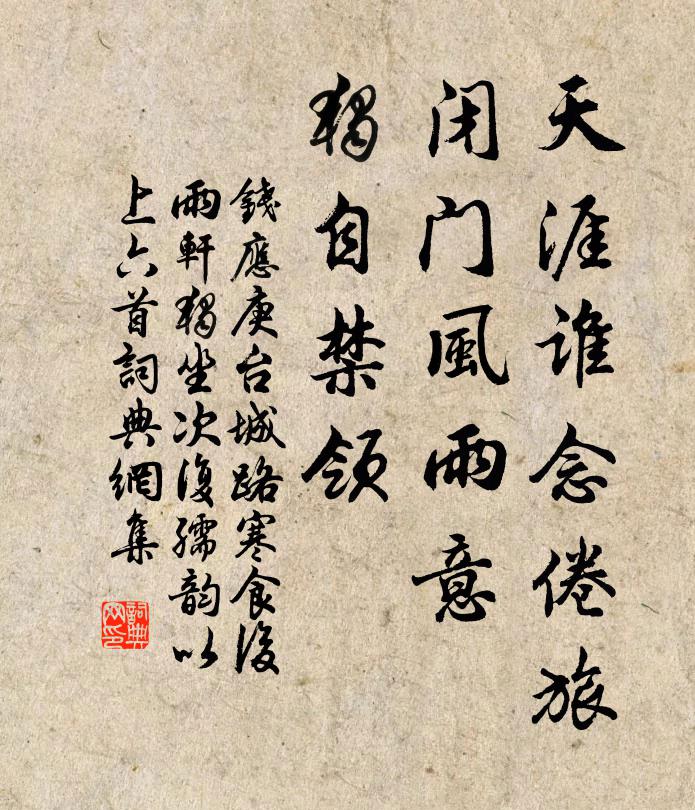 天涯谁念倦旅
闭门風雨意
獨自禁領
錢應庚台城路寒食後
雨軒獨坐次復孺韵以
上六首詞典網集
詞典网印